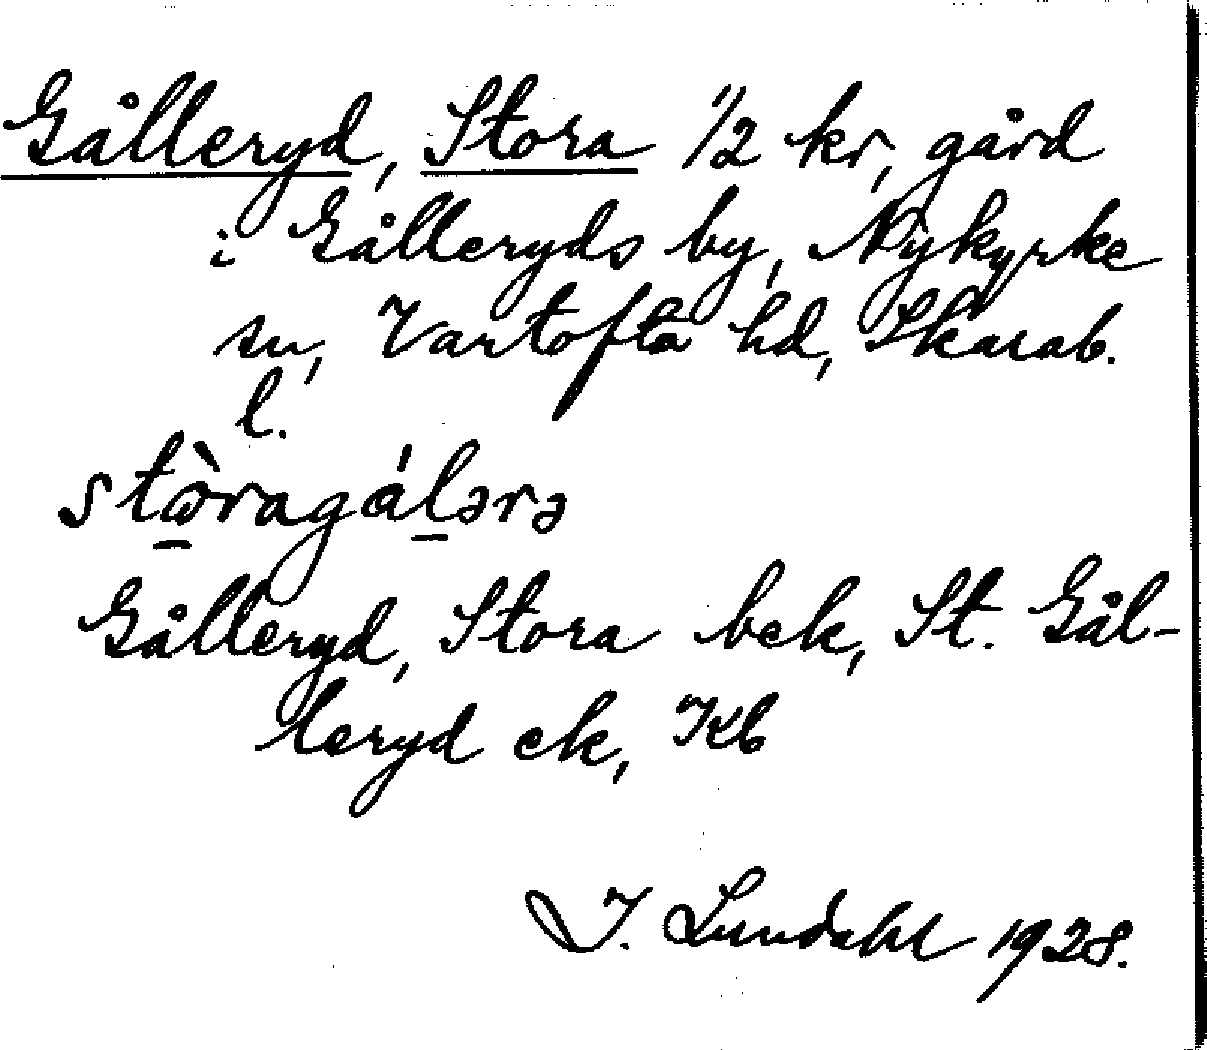 Gålleryd, Stora 1/2 kr, gård
i Gålleryds by, Nykyrke
sn, Vartofta hd, Skarab.
l.
stὼ̱ragáḻərə
Gålleryd, Stora bek, St. Gål-
leryd ek, Kb
I. Lundahl 1928.